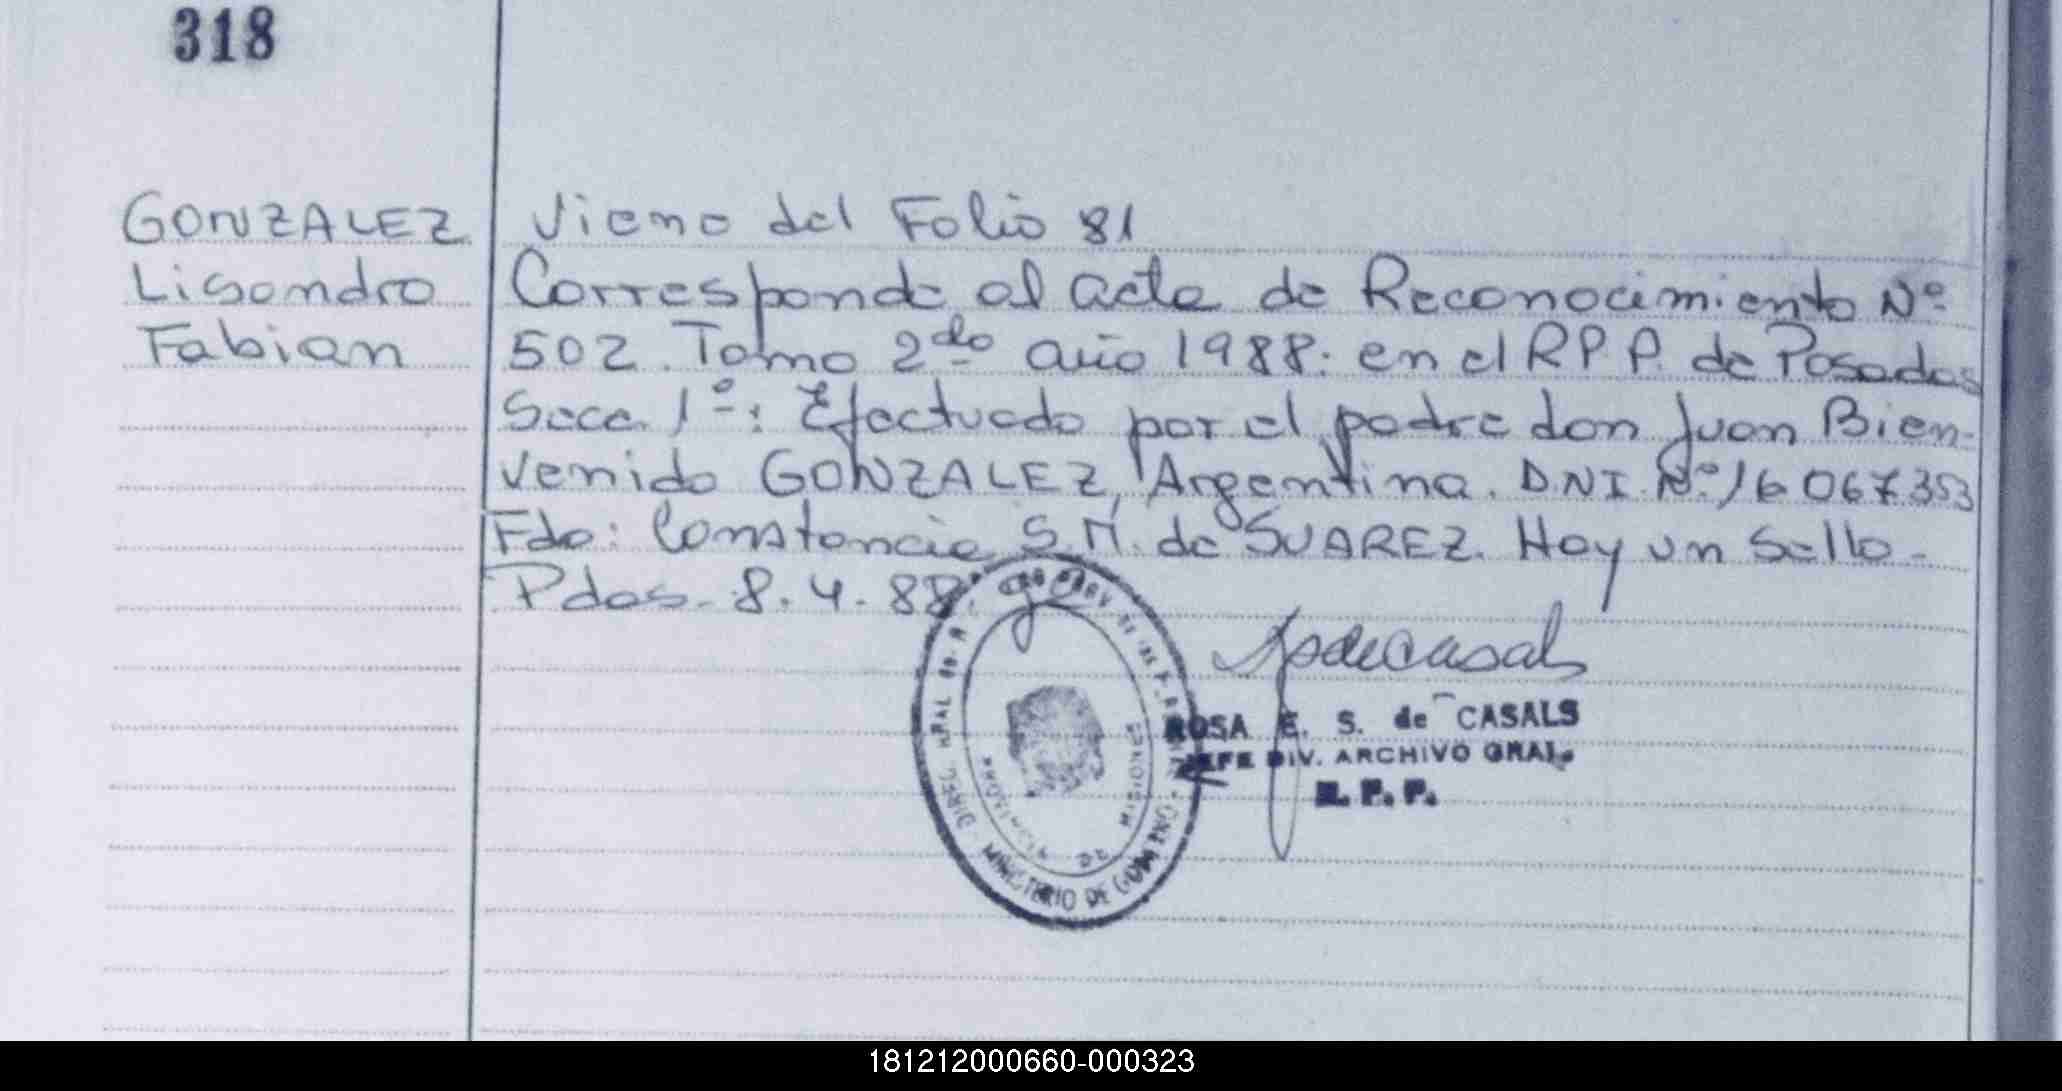 318
GONZALEZ
Lisandro
Fabian
Viene del Folio 81
Corresponde al acta de Reconocimiento Nº
502. Tomo 2do año 1988. en el R P P. de Posadas
Secc. 1º: Efectuado por el padre don Juan Bien-
venido GONZALEZ, Argentina. DNI. Nº 16 067 353
Fdo: Constancia S. M. de SUAREZ. Hay un Sello-
Pdas. 8. 4. 88.
ROSA E. S. de CASALS
JEFE DIV. ARCHIVO GRAL.
R. P. P.
MINISTERIO DE GOBIERNO
MISIONES
181212000660-000323